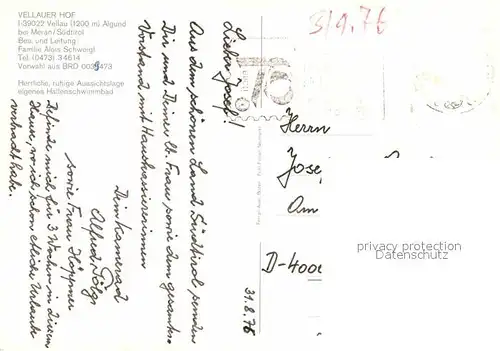 VELLAUER HOF
I-39022 Vellau (1200 m) Algund
bei Meran/Südtirol
Bes. und Leitung:
Familie Alois Schweigl
Tel. (0473) 34614
Vorwahl aus BRD 0039473
Herrliche, ruhige Aussichtslage
eigenes Hallenschwimmbad
3/9.76
Lieber Josef!
Aus dem schönen Land Südtirol senden
Dir und Deiner lb. Frau sowie dem gesamten
Vorstand mit Handkassiererinnen
Dein Kamerad
Alfred
sowie Frau Höppner
Befinde mich für 3 Wochen in diesem
Hause, wo ich schon etliche Urlaube
verbracht habe.
31.8.76
Herrn
Jose
Am
D-4000
privacy protection
Datenschutz